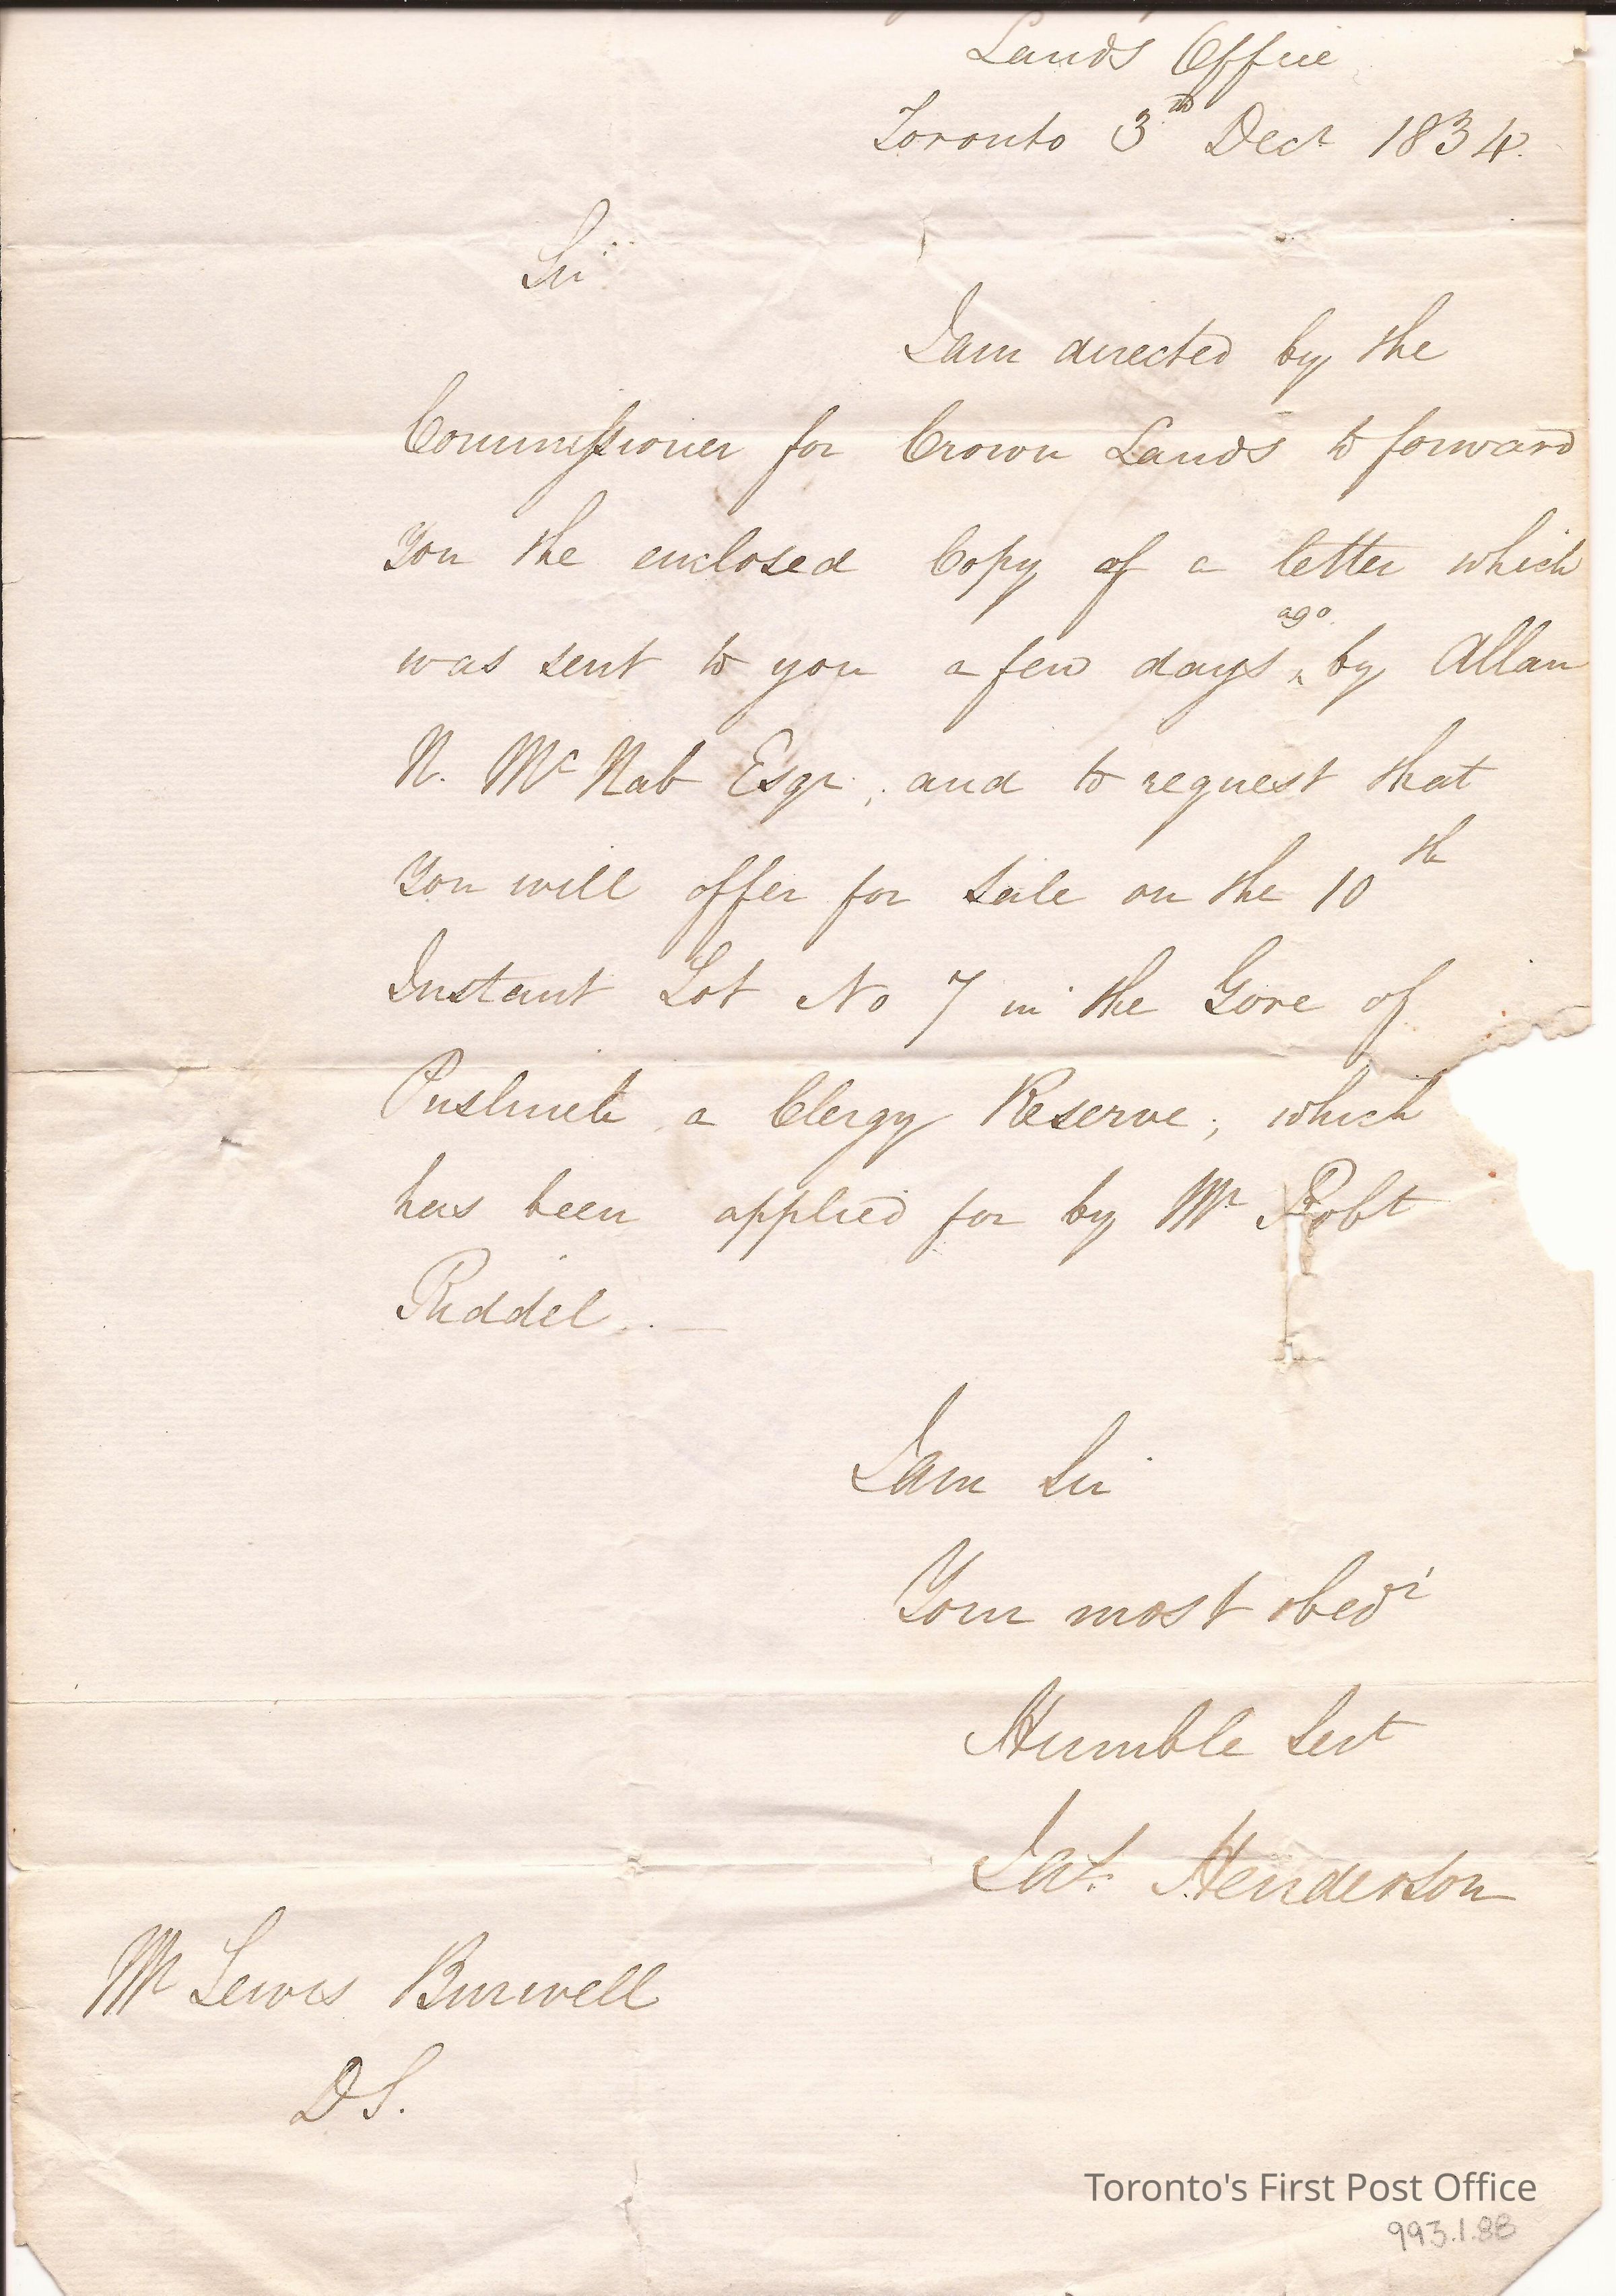 Lands Office
Toronto 3th Decr 1834.
Sir
I am directed by the
Commissioner for Crown Lands to forward
you the enclosed Copy of a letter which
ago
was sent to you a few days ‸ by Allan
N. McNab Esqr; and to request that
you will offer for Sale on the 10th
Instant Lot No 7 in the Gore of
Puslinch a Clergy Reserve; which
has been applied for by Mr Robt
Riddel. —
I am Sir
Your most obedt
Humble Sert
Jas. Henderson
Mr Lewis Burwell
D S.
Toronto's First Post Office
993.1.88